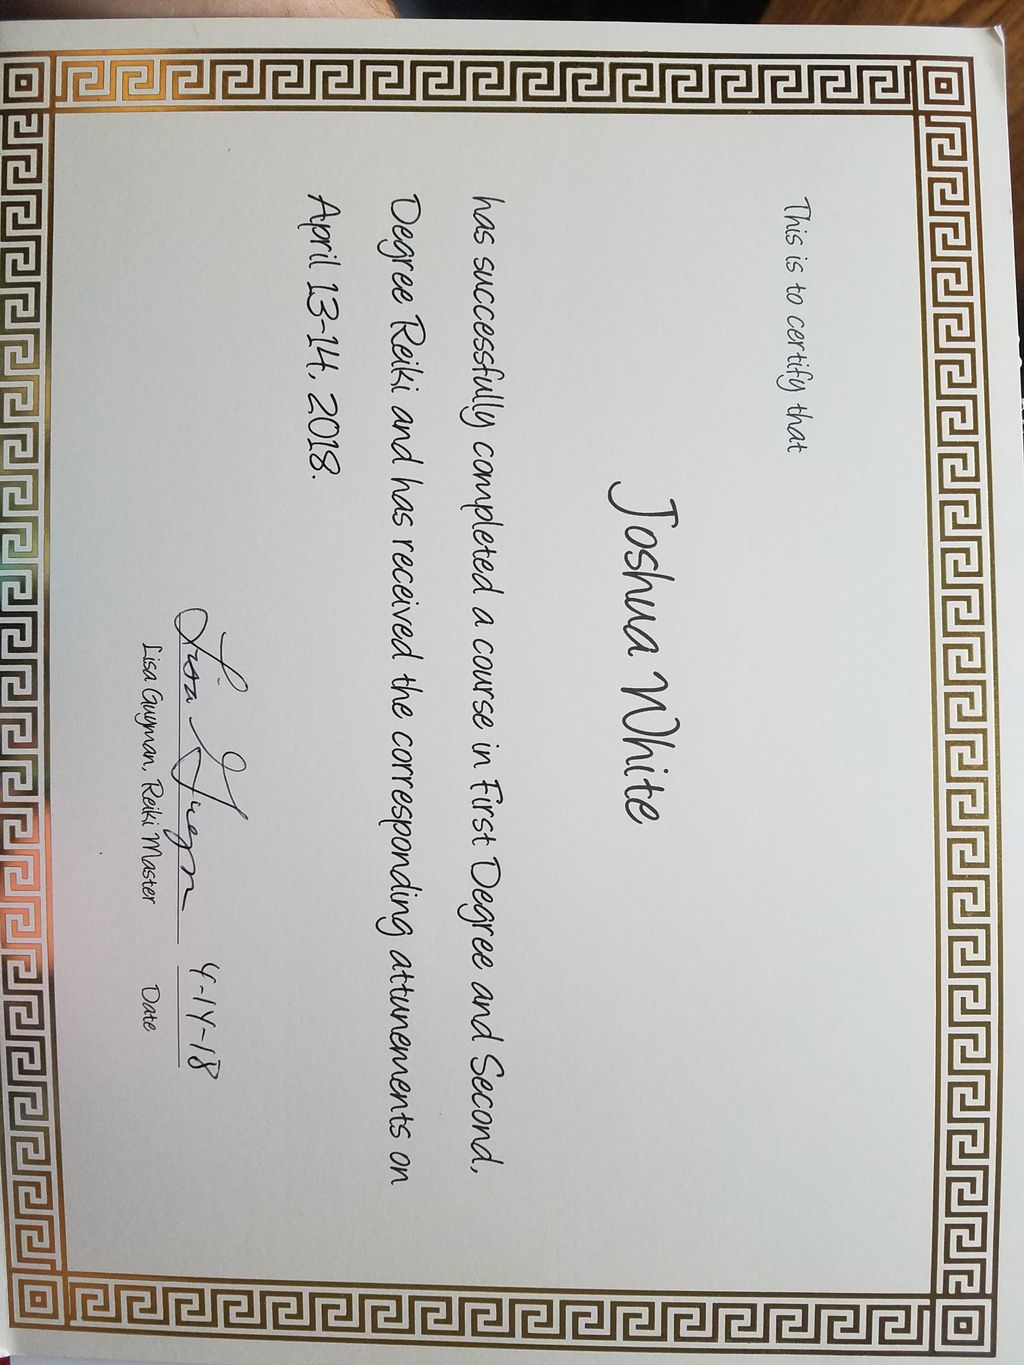 This is to certify that
Joshua White
has successfully completed a course in First Degree and Second,
Degree Reiki and has received the corresponding attunements on
April 13-14, 2018.
Lisa Guyman 4-14-18
Lisa Guyman, Reiki Master Date